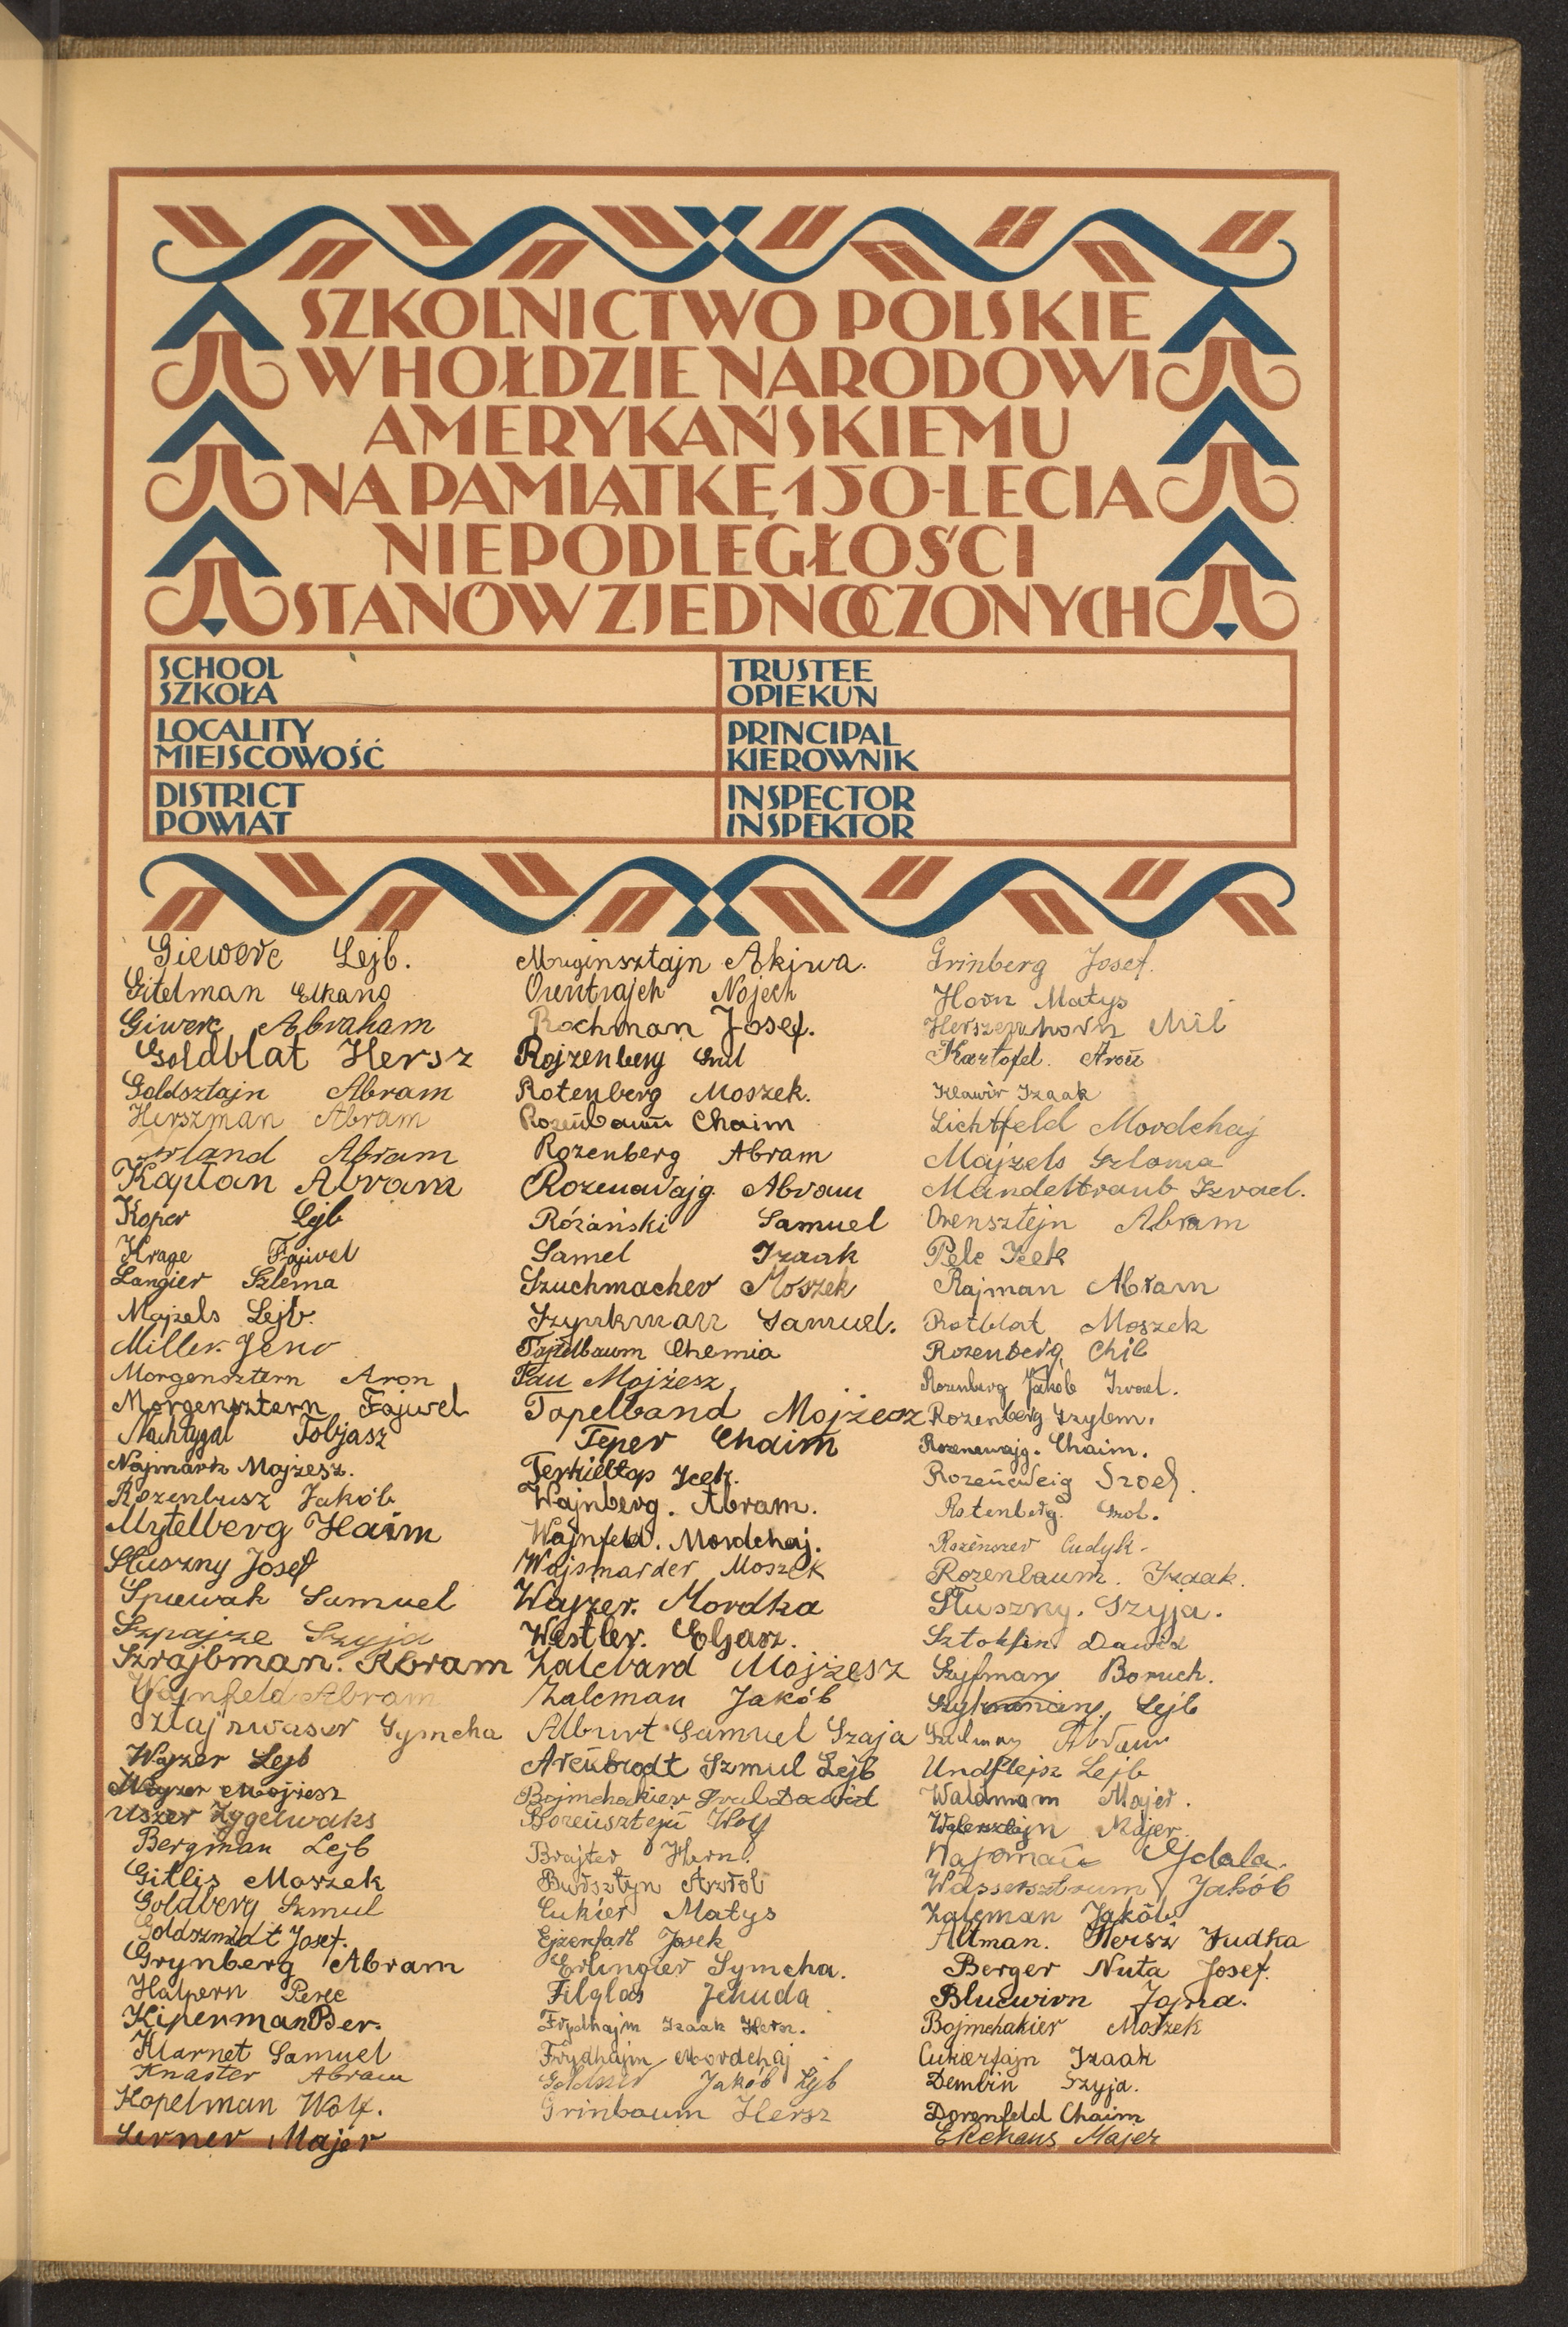 SZKOLNICTWO POLSKIE
W HOŁDZIE NARODOWI
AMERYKAŃSKIEMU
NA PAMIĄTKĘ 150-LECIA
NIEPODLEGŁOŚCI
STANÓW ZJEDNOCZONYCH
SCHOOL
SZKOŁA
TRUSTEE
OPIEKUN
LOCALITY
MIEJSCOWOŚĆ
PRINCIPAL
KIEROWNIK
DISTRICT
POWIAT
INSPECTOR
INSPEKTOR
Giewerc Lejb.
Gitelman Elkano
Giwerc Abraham
Goldblat Hersz
Goldsztajn Abram
Herszman Abram
Irland Abram
Kaplan Abram
Koper Lejb
Krage Fajwel
Langier Szlema
Majzels Lejb.
Miller Jeno
Morgensztern Aron
Morgensztern Fajwel
Nachtygal Tobjasz
Najmark Mojżesz.
Rozenbusz Jakób
Mytelberg Haim
Słuszny Josef
Śpiewak Samuel
Szpajze Szyja
Szrajbman. Abram
Wajnfeld Abram
Sztajnwaser Symcha
Wajzer Lejb
Wajzer Mojżesz
Uszer Zygelwaks
Bergman Lejb
Gitlis Moszek
Goldberg Szmul
Goldszmidt Josef.
Grynberg Abram
Halpern Perec
Kipenman Ber.
Klarnet Samuel
Knaster Abram
Kopelman Wolf.
Lerner Majer
Muginsztajn Akiwa.
Orentrajch Nojech
Rochman Josef.
Rojzenberg Srul
Rotenberg Moszek.
Rozenbaum Chaim
Rozenberg Abram
Rozencwajg Abram
Różański Samuel
Samel Izaak
Szuchmacher Moszek
Szynkman Samuel.
Tajtelbaum Chemia
Tau Mojżesz
Topelband Mojżesz
Teper Chaim
Terkieltop Icek.
Wajnberg. Abram.
Wajnfeld. Mordchaj.
Wajsmarder Moszek
Wajzer. Mordka
Westler. Eljasz.
Zalcband Mojżesz
Zalcman Jakób
Alburt Samuel Szaja
Arenbrodt Szmul Lejb
Bojmchakier Srul Dawid
Borensztejn Wolf
Brajter Hern.
Bursztyn
Cukier Matys
Ejzenfarb Josek
Erlingier Symcha.
Filglas Jehuda
Frydhajm Izaak Hersz.
Frydhajm Mordchaj
Jakób Lejb
Grinbaum Hersz
Grinberg Josef.
Horn Matys
Herszenhorn Mil
Kartofel. Aron
Klawir Izaak
Lichtfeld Mordchaj
Majzels Szloma
Mandeltraub Izrael.
Orensztejn Abram
Pelc Icek
Rajman Abram
Rotblat Moszek
Rozenberg Chil
Rozenberg Jakób Izrael.
Rozenberg Szylem.
Rozencwajg. Chaim.
Rozencweig Sroel.
Rotenberg. Srol.
Cudyk.
Rozenbaum. Izaak.
Słuszny. Szyja.
Sztokfin Dawid
Szyfman Boruch.
Lejb
Szulman Abram
Undflejsz Lejb
Waldmam Majer.
Majer.
Wajcman Gdala.
Wassersztrum Jakób
Zalcman Jakób
Altman. Hersz Judka
Berger Nuta Josef.
Blucwirn Jojna.
Bojmchakier Moszek
Cukierfajn Izaak
Dembin Szyja.
Dorenfeld Chaim
Ekehaus Majer